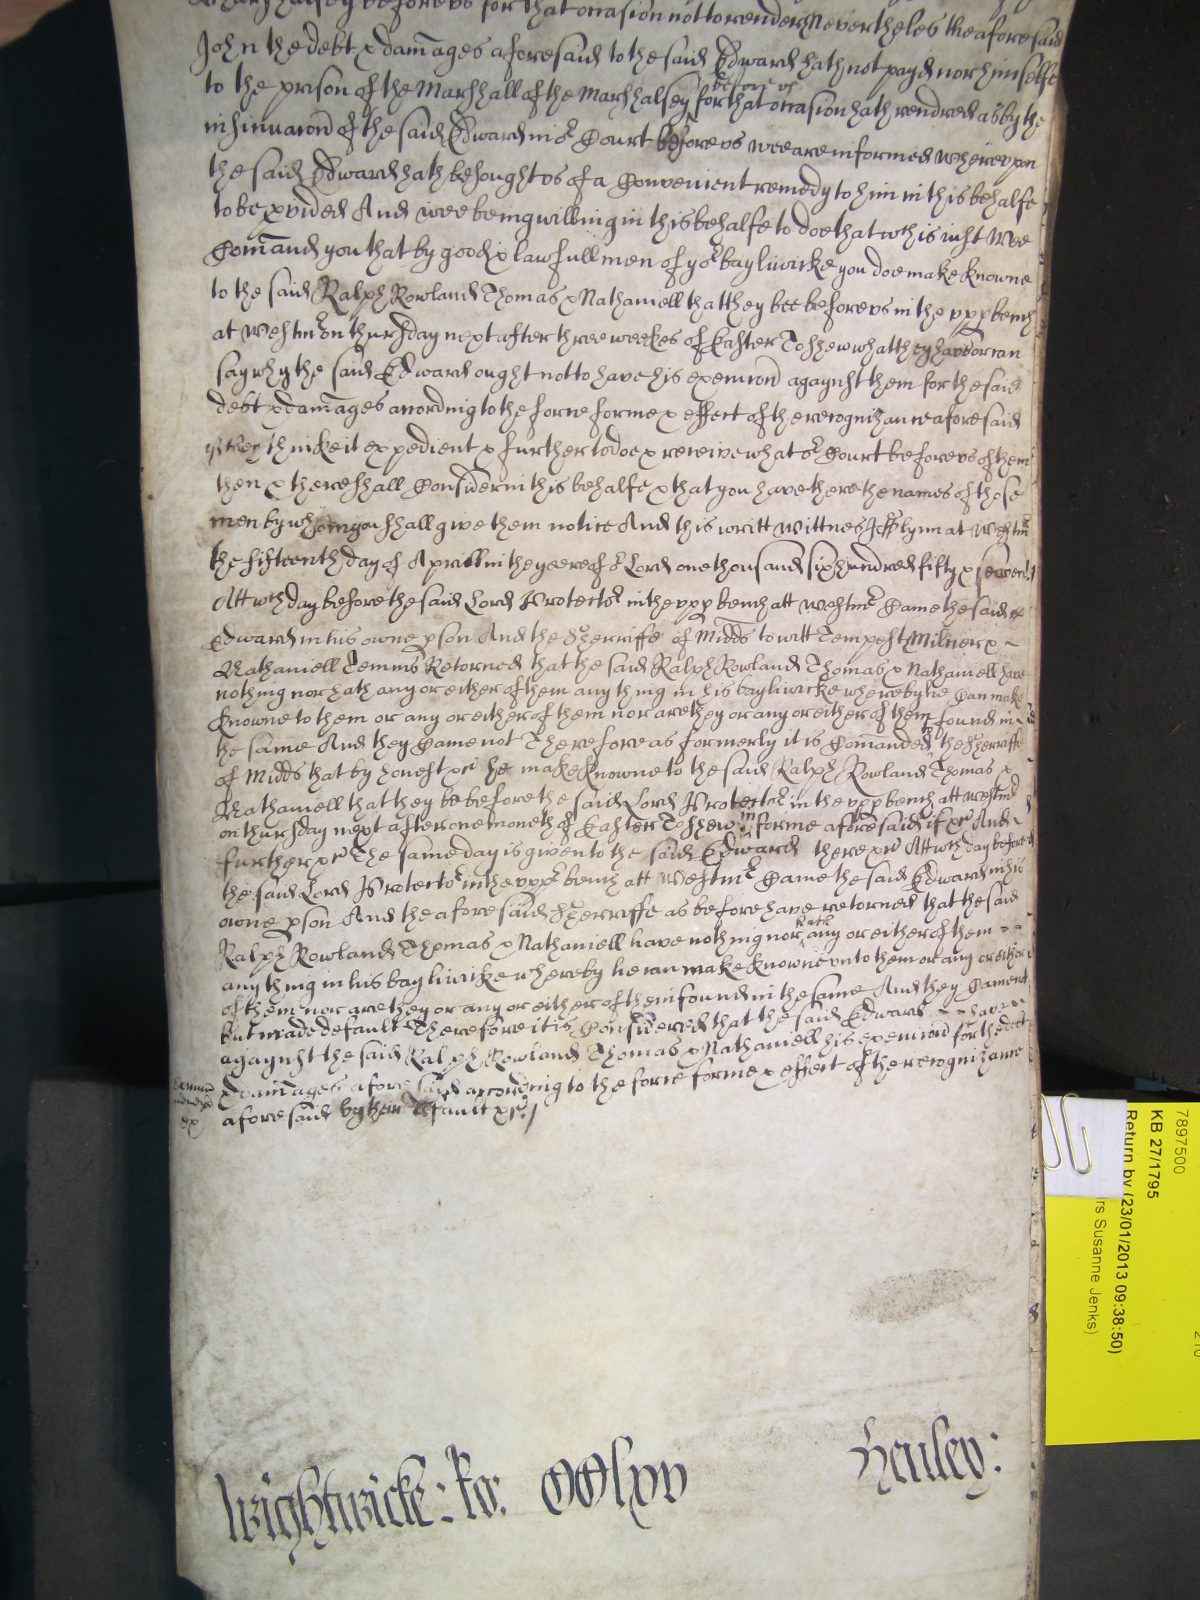 Marshalsey before us for that occasion not to render Nevertheles the aforesaid
John the debt & damages aforesaid to the said Edward hath not payd nor himselfe
to the prison of the Marshall of the Marshalsey before us for that occasion hath rendred as by the
insinuacon of the said Edward in or Court before us wee are informed whereupon
the said Edward hath besought us of a Convenient remedy to him in this behalfe
to be pvided And wee being willing in this behalfe to doe that wch is iust Wee
Comand you that by good & lawfull men of yor bayliwicke you doe make knowne
to the said Ralph Rowland Thomas & Nathaniell that they bee before us in the upp bench
at Westmr on thursday next after three weekes of Easter To shew what they have or can
say why the said Edward ought not to have his execucon agaynst them for the said
debt & damages according to the force forme & effect of the recognizance aforesaid
if they thinke it expedient & further to doe & receive what or Court before us of them
then & there shall Consider in this behalfe & that you have there the names of those
men by whom you shall give them notice And this writt Wittnes Jo Glynn at Westmr
the fifteenth day of Aprill in the yeere of or Lord one thousand six hundred fifty & seaven
Att wch day before the said Lord Protector in the upp bench att Westmr Came the said
Edward in his owne pson And the Sherriffe of Midds to witt Tempest Milner &
Nathaniell Temms Retorned that the said Ralph Rowland Thomas & Nathaniell have
nothing nor hath any or either of them any thing in his bayliwicke whereby he Can make
knowne to them or any or either of them nor are they or any or either of them found in
the same And they Came not Therefore as formerly it is Comanded to the Sherriffe
of Midds that by honest &c he make knowne to the said Ralph Rowland Thomas &
Nathaniell that they be before the said Lord Protector in the upp bench att Westmr
on thursday next after one moneth of Easter To shew in forme aforesaid if &c And
further &c The same day is given to the said Edward there &c Att wch day before
the said Lord Protector in the uppr bench att Westmr Came the said Edward in his
owne pson And the aforesaid Sherriffe as before have retorned that the said
Ralph Rowland Thomas & Nathaniell have nothing nor hath any or either of them
any thing in his bayliwicke whereby he can make knowne unto them or any or either
of them nor are they or any or either of them found in the same And they Came not
but made default Therefore it is Considered that the said Edward have
agaynst the said Ralph Rowland Thomas & Nathaniell his execucon for the debt
& damages aforesaid according to the force forme & effect of the recognizance
aforesaid by their default &c
Wrightwicke: Ro: CClxv
Henley:
7897500
KB 27/1795
Return by (23/01/2013 09:38:50)
rs Susanne Jenks)